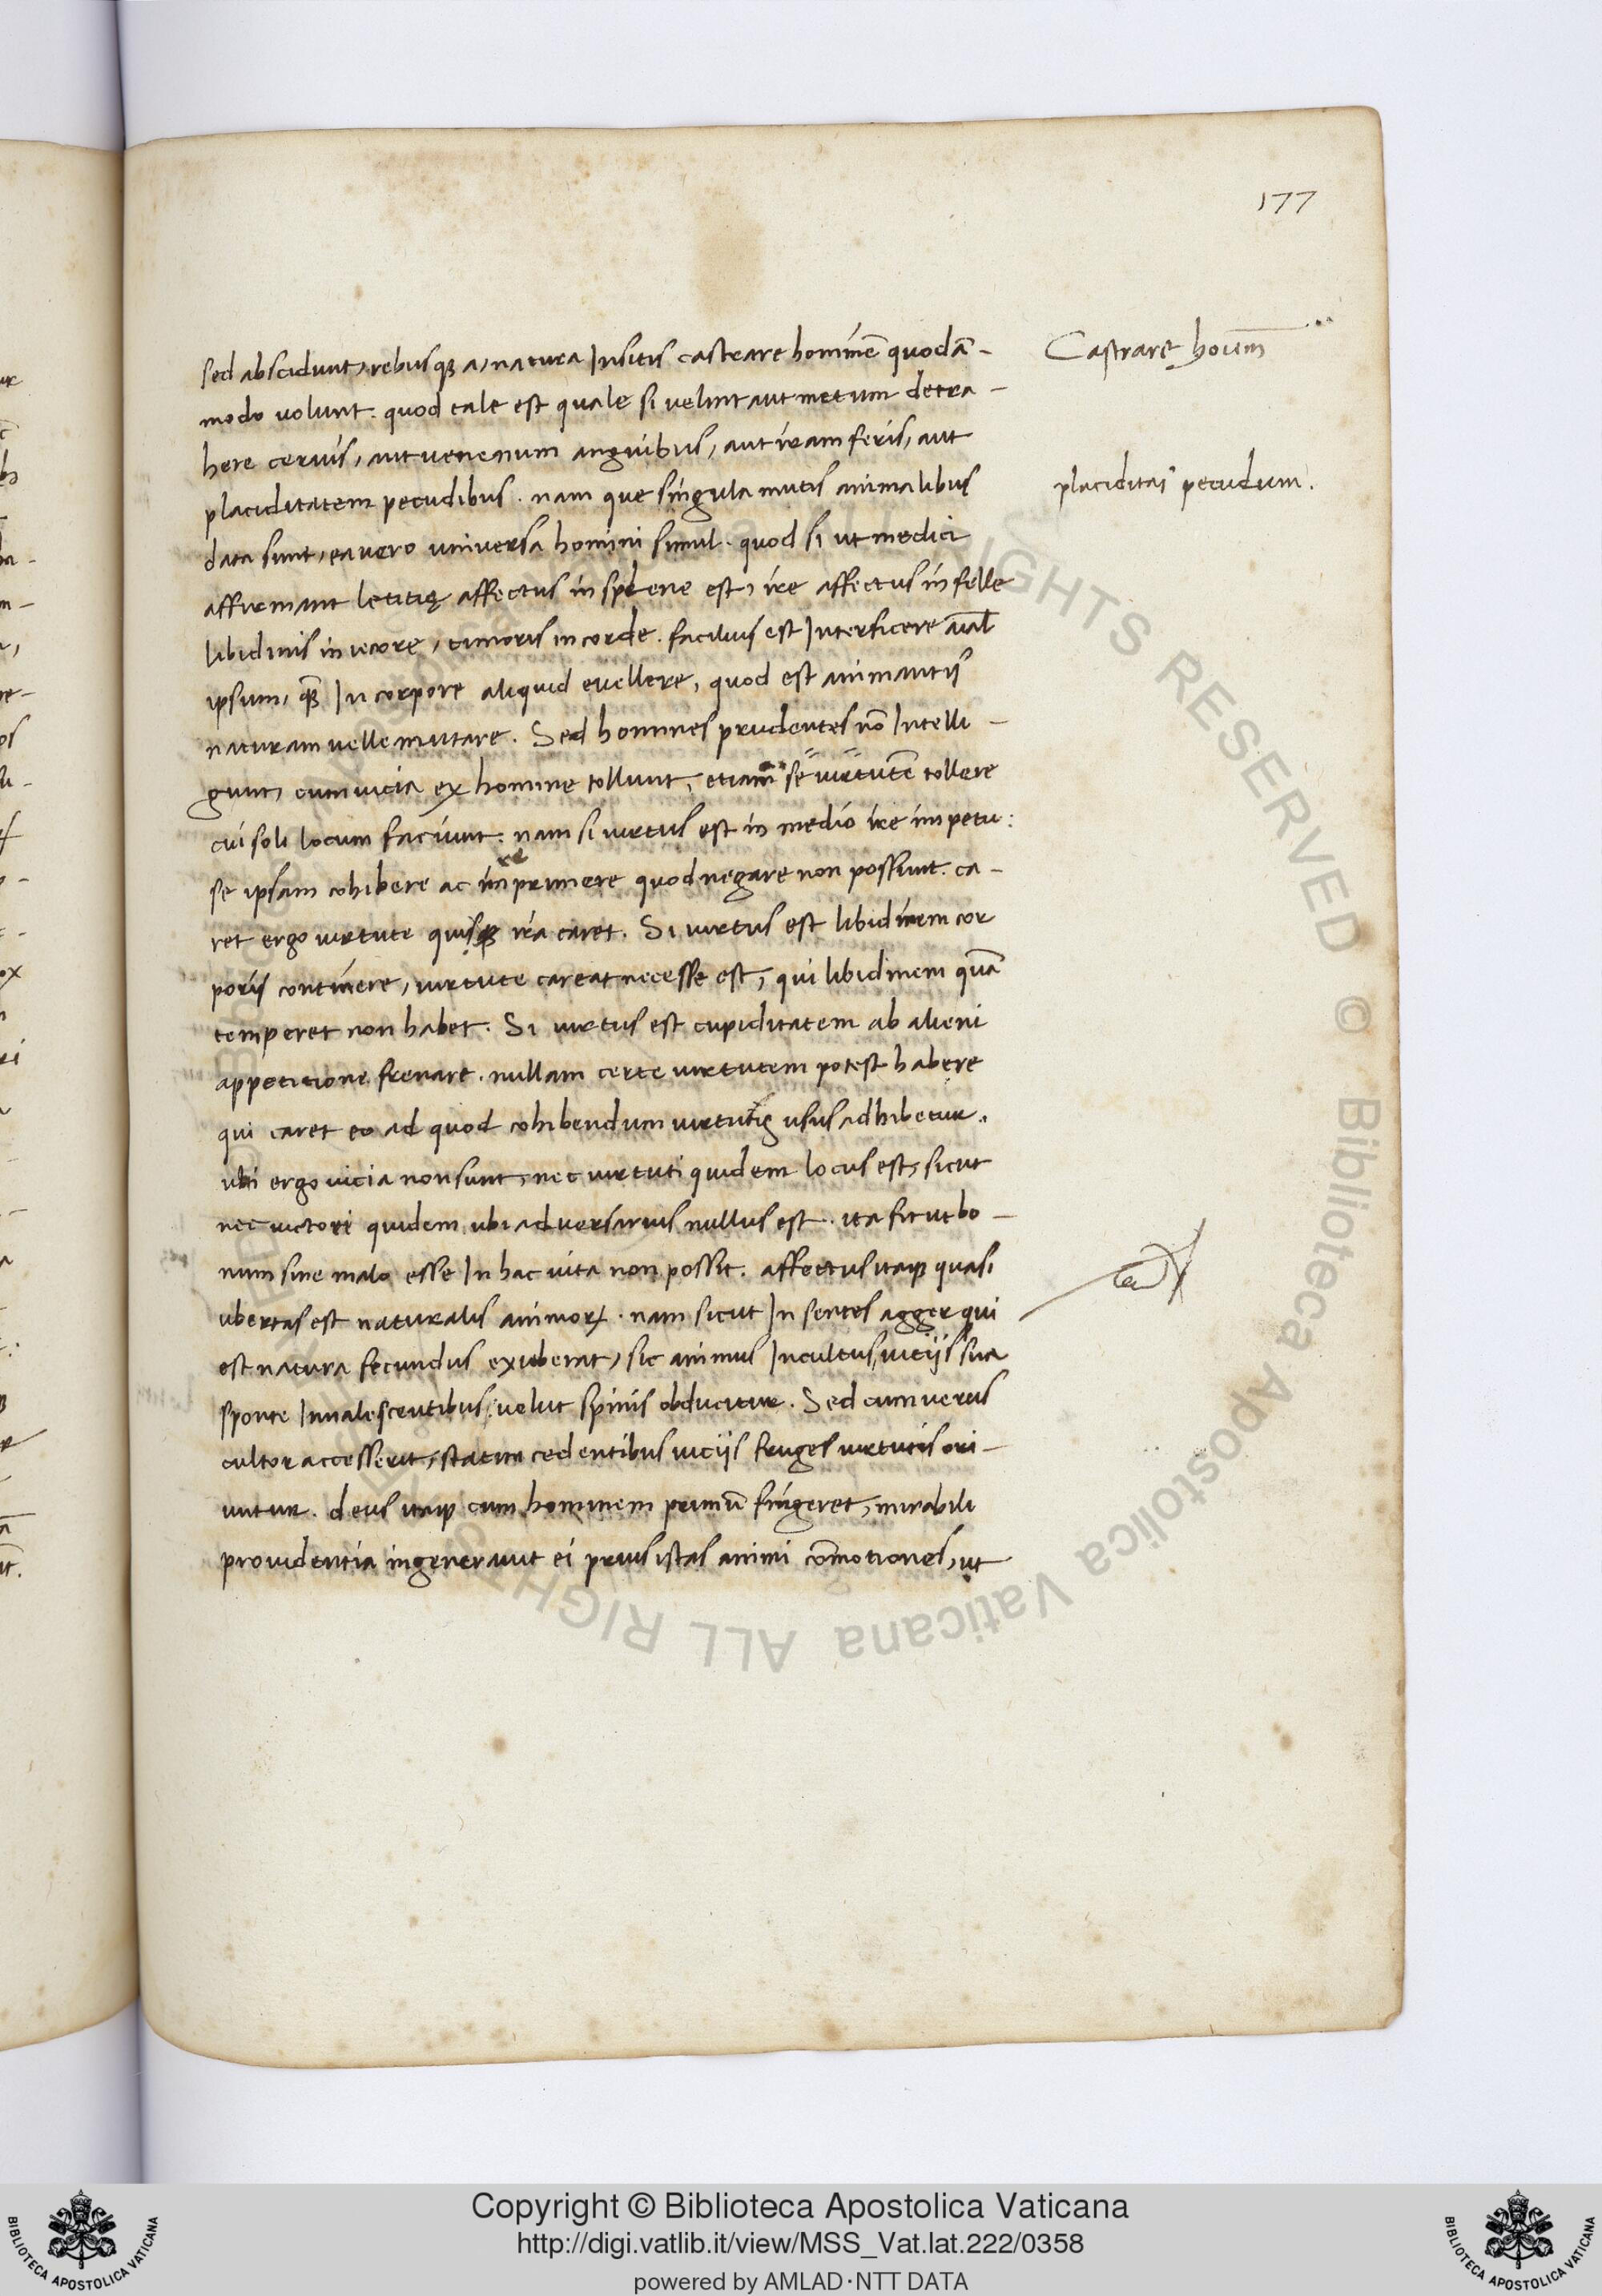 177
sed abscidunt, rebusqꝫ a, natura Insitis castrare hominē quodā-
modo volunt. quod tale est quale si velint aut metum detra-
here ceruis, aut venenum anguibus, aut iram feris, aut
placiditatem pecudibus. nam que singula mutis animalibus
data sunt, ea vero universa homini simul. quod si ut medici
affirmant letitię affectus in splene est, ire affectus in felle
libidinis in iecore, timoris in corde. facilius est Interficere aīal
ipsum, qꝫ In corpore aliquid evellere, quod est animantis
naturam velle mutare. Sed homines prudentes nō Intelli-
gunt, cum vicia ex homine tollunt, etiam se virtutē tollere
cui soli locum faciunt. nam si virtus est in medio ire impetu:
se ipsam cohibere ac imprimere quod negare non possunt. ca-
re
ret ergo virtute quisqꝫ ira caret. Si virtus est libidinem cor
poris continere, virtute careat necesse est, qui libidinem quā
temperet non habet. Si virtus est cupiditatem ab alieni
appetitione frenare. nullam certe virtutem potest habere
qui caret eo ad quod cohibendum virtutis usus adhibetur.
ubi ergo vicia non sunt, nec virtuti quidem locus est, sicut
nec victori quidem ubi adversarius nullus est. ita fit ut bo-
num sine malo esse In hac vita non possit. affectus itaqꝫ quasi
ubertas est naturalis animoꝝ. nam sicut In sentes agger qui
est natura fecundus exuberat, sic animus Incultus, viciis sua
sponte Invalescentibus: velut spinis obducitur. Sed cum verus
cultor accesserit, statim cedentibus viciis fruges virtutis ori-
untur. deus itaqꝫ cum hominem primū fingeret, mirabili
providentia ingeneravit ei prius istas animi cōmotiones, ut
Castrare hoīem
placiditas pecudum.
Copyright © Biblioteca Apostolica Vaticana
http://digi.vatlib.it/view/MSS_Vat.lat.222/0358
powered by AMLAD·NTT DATA
BIBLIOTECA APOSTOLICA VATICANA
BIBLIOTECA APOSTOLICA VATICANA
© Biblioteca Apostolica Vaticana ALL RIGHTS RESERVED